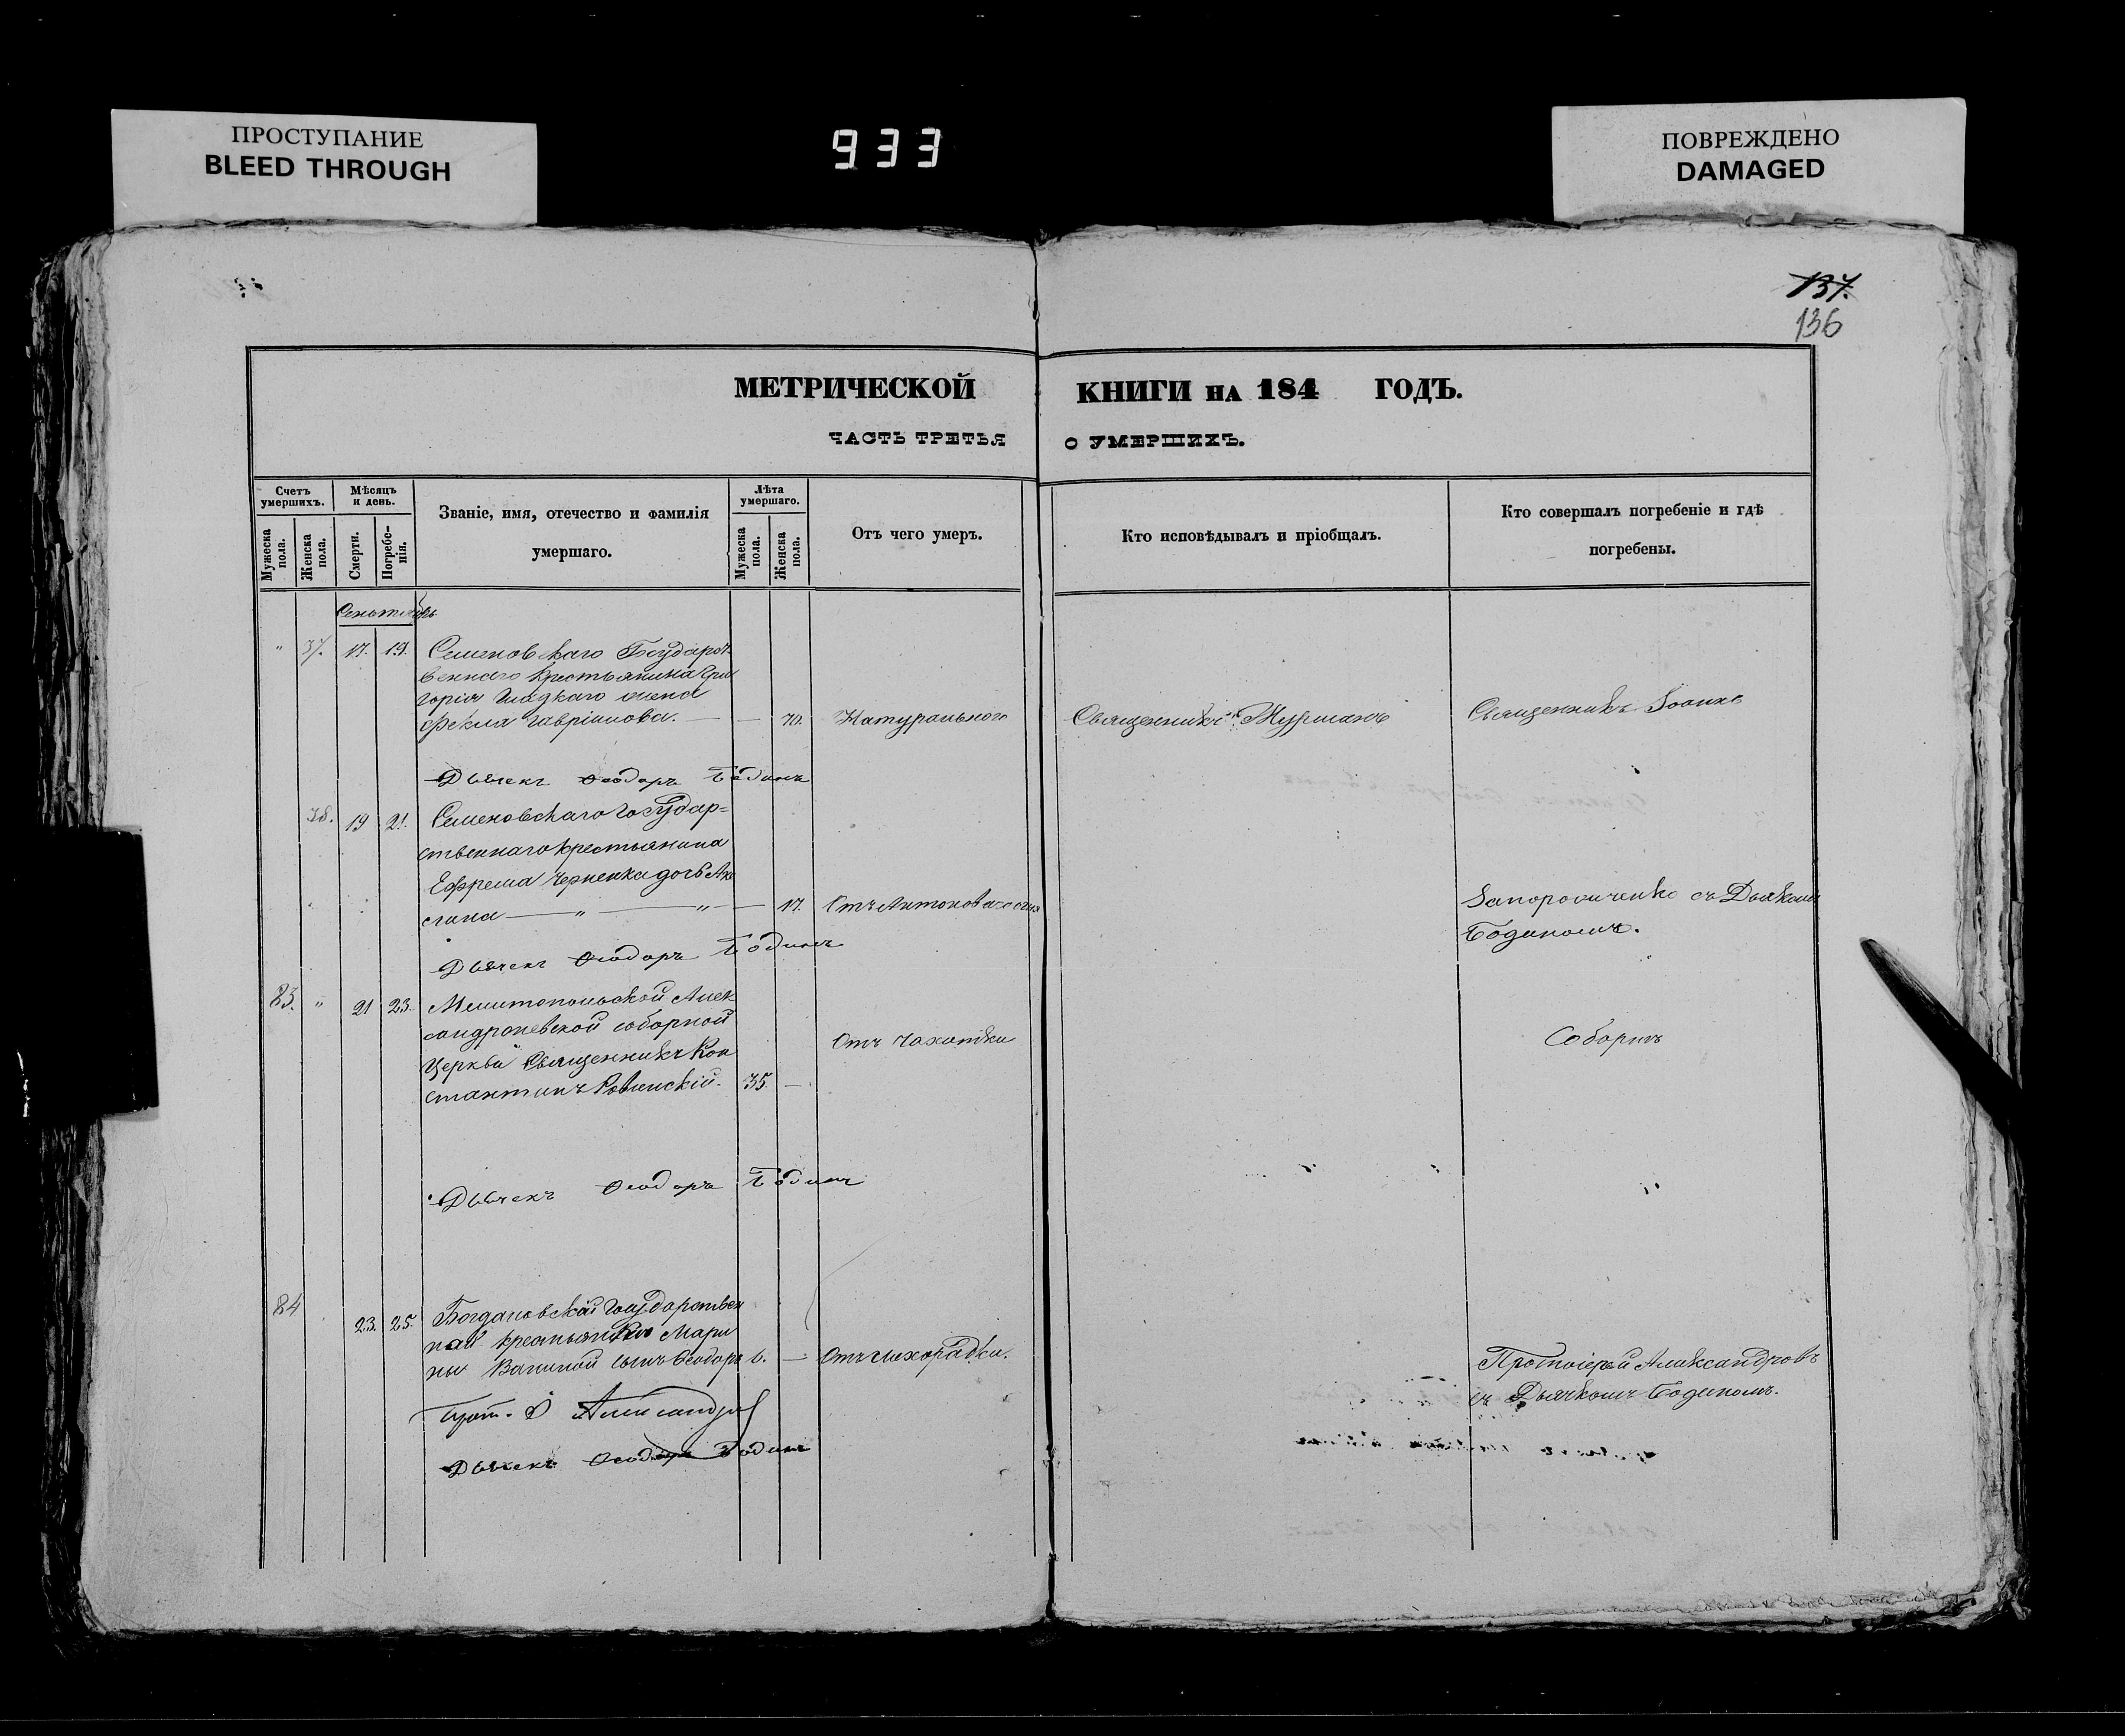 ПРОСТУПАНИЕ
BLEED THROUGH
933
ПОВРЕЖДЕНО
DAMAGED
137.
136
МЕТРИЧЕСКОЙ КНИГИ НА 184 ГОДЪ.
ЧАСТЬ ТРЕТЬЯ О УМЕРШИХЪ.
Счетъ умершихъ.
Мужеска пола.
Женска пола.
Мѣсяцъ и день.
Смерти.
Погребе-нія.
Званіе, имя, отечество и фамилія
умершаго.
Лѣта умершаго.
Мужеска пола.
Женска пола.
Отъ чего умеръ.
Кто исповѣдывалъ и пріобщалъ.
Кто совершалъ погребеніе и гдѣ
погребены.
Сеньтябрь
" 37. 17. 19. Семеновскаго Государст
веннаго крестьянина Гри
горія Гладкаго жена
Фекла Гавріилова. — — 70. Натуральной Священникъ Журманъ Священникъ Іоаннъ
Дьячекъ Ѳеодоръ Бодинъ
38. 19 21. Семеновскаго Государ=
ственнаго крестьянина
Ефрема Черненка дочь Аку
лина — " — " — 17. Отъ Антонова огня Запорожченко съ Дьячкомъ
Бодиномъ.
Дьячекъ Ѳеодоръ Бодинъ
83. " 21 23. Мелитопольской Алек
сандроневской соборной
церкви Священникъ Кон
стантинъ 35. — Отъ чахотки Соборнъ
Дьячекъ Ѳеодоръ Бодинъ
84 23. 25. Богдановской Государствен
ной крестьянки Мари
ны сынъ Ѳеодоръ 6. — Отъ лихорадки. Протоіерей Александровъ
съ Дьячкомъ Бодиномъ.
Прот. Александровъ
Дьячекъ Ѳеодоръ Бодинъ